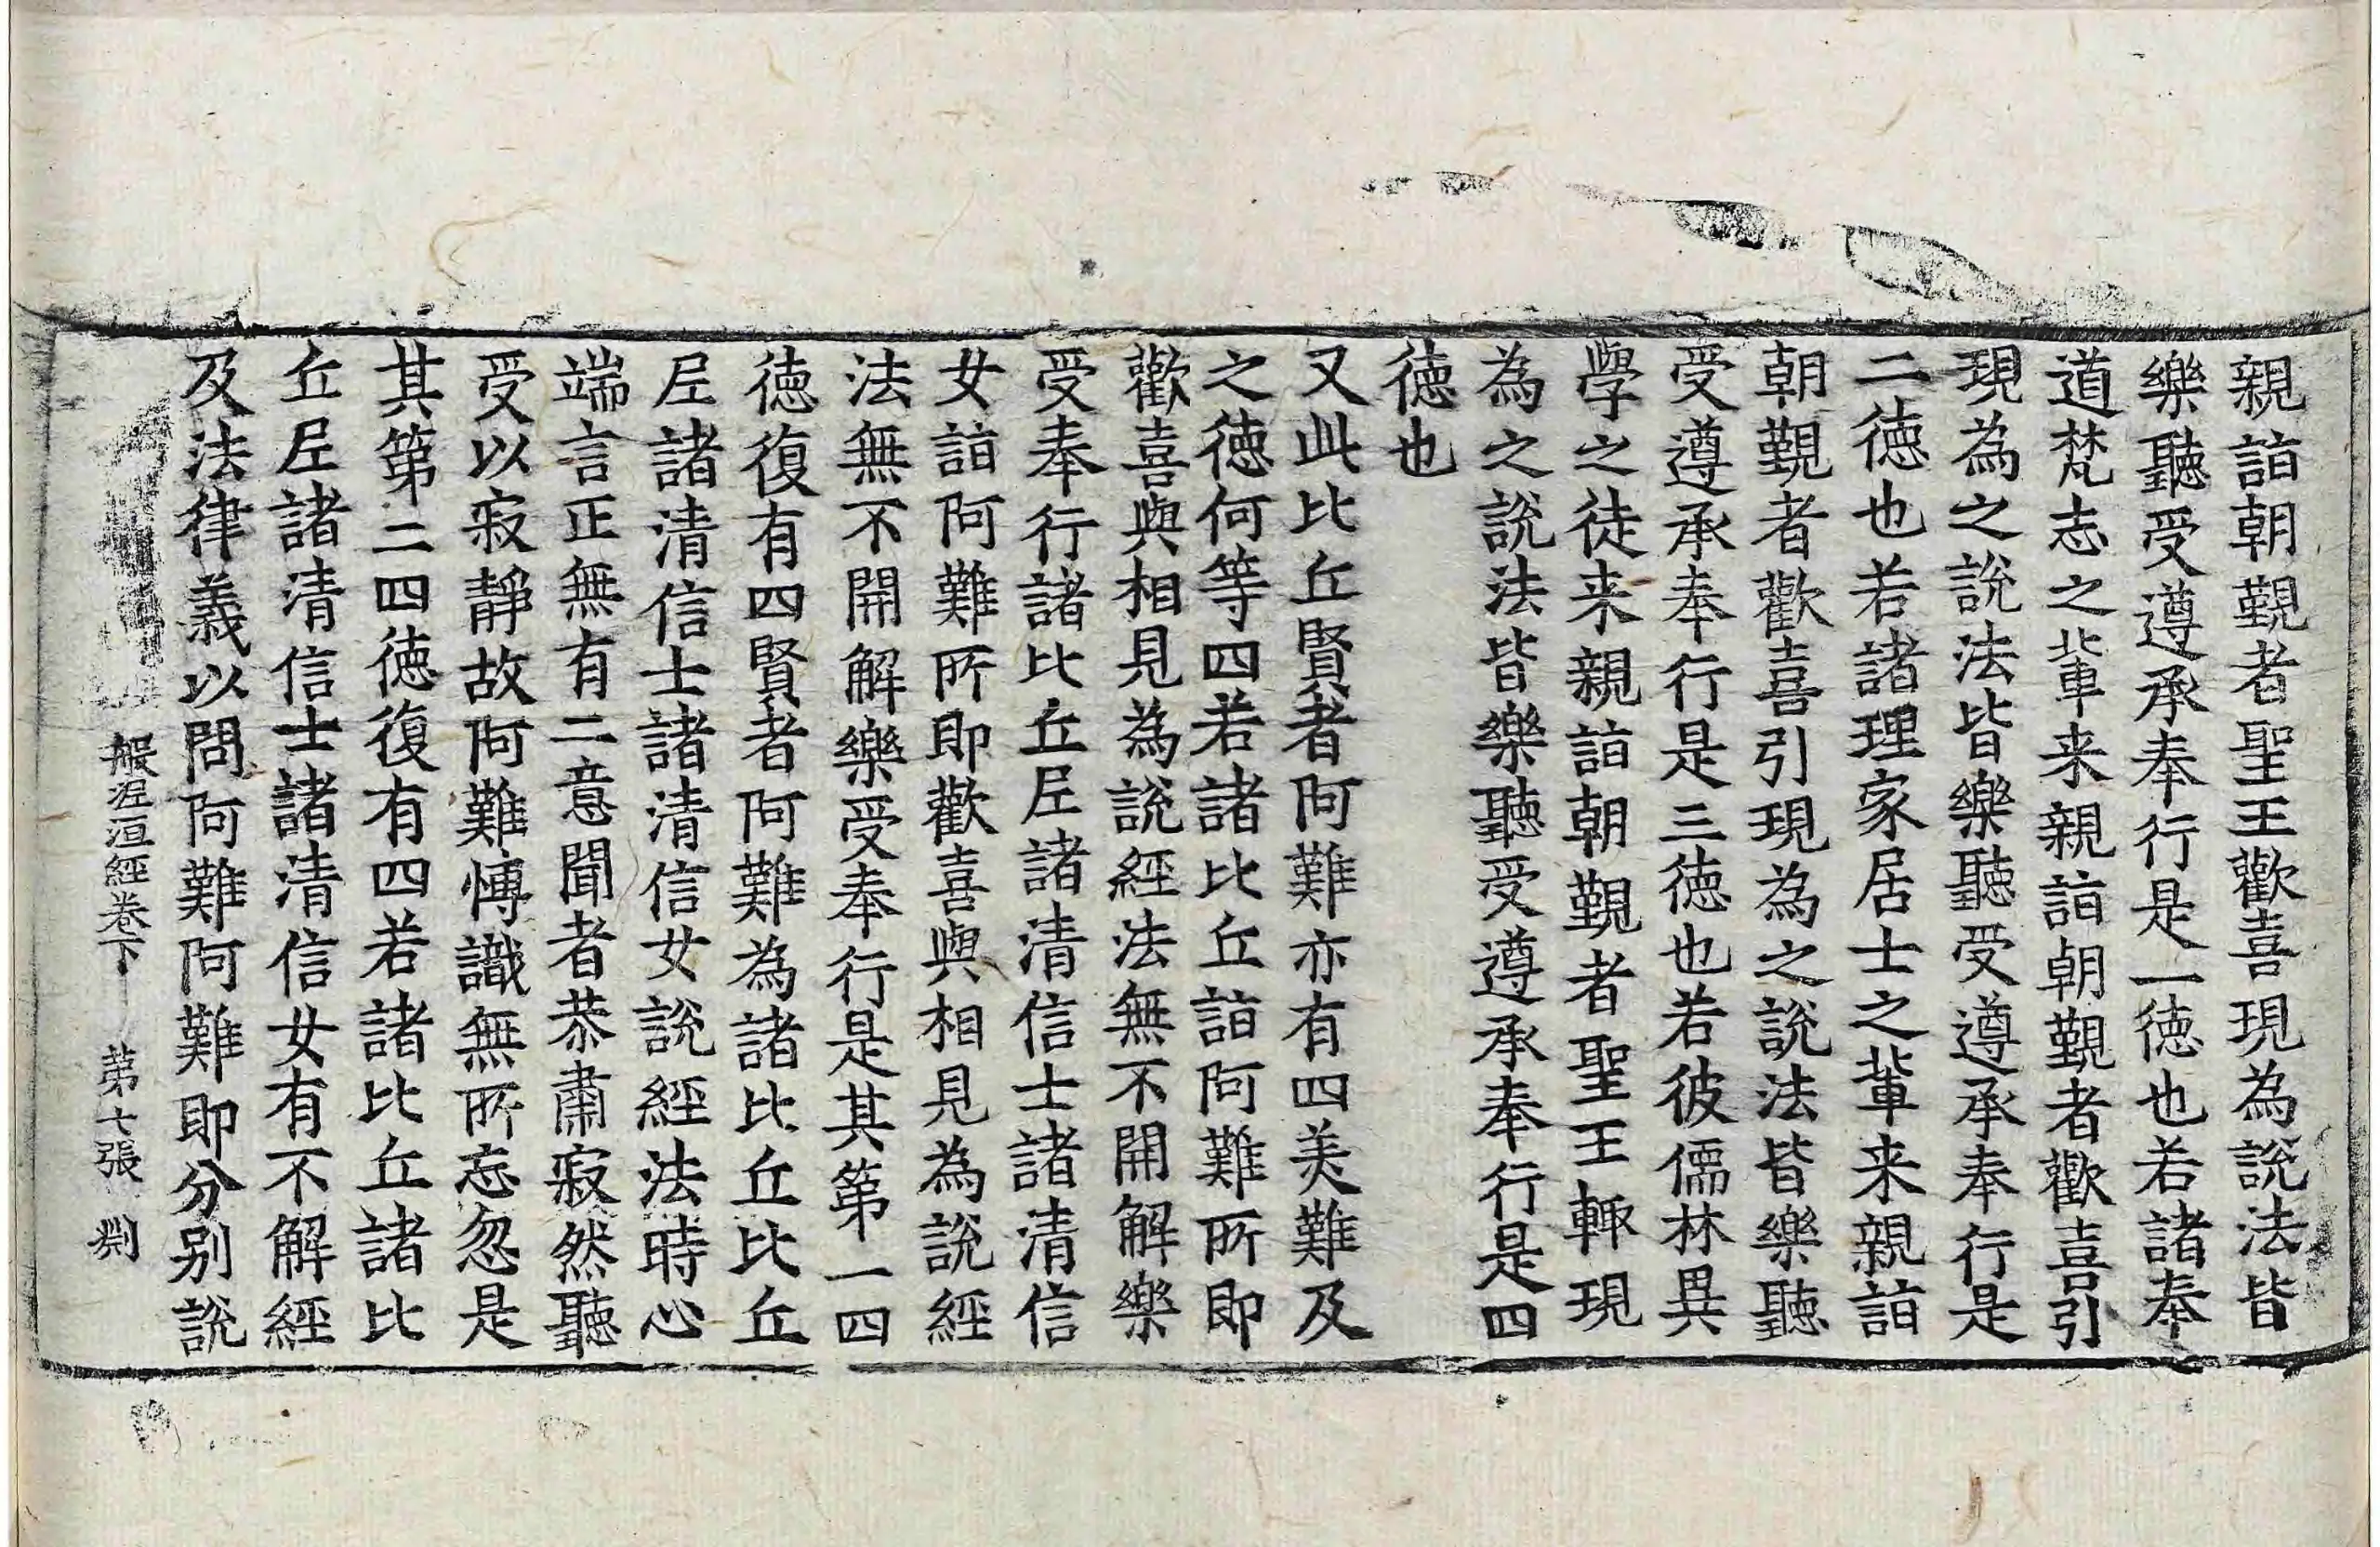 親詣朝覲者聖王歡喜現為說法皆
樂聽受遵承奉行是一徳也若諸奉
道梵志之軰来親詣朝覲者歡喜引
現為之說法皆樂聽受遵承奉行是
二徳也若諸理家居士之軰来親詣
朝覲者歡喜引現為之說法皆樂聽
受遵承奉行是三徳也若彼儒林異
學之徒来親詣朝覲者聖王輙現
為之說法皆樂聽受遵承奉行是四
徳也
又此比丘賢者阿難亦有四羙難及
之徳何等四若諸比丘詣阿難所即
歡喜與相見為說經法無不開解樂
受奉行諸比丘𡰱諸清信士諸清信
女詣阿難所即歡喜與相見為說經
法無不開解樂受奉行是其第一四
徳復有四賢者阿難為諸比丘比丘
𡰱諸清信士諸清信女說經法時心
端言正無有二意聞者恭肅寂然聽
受以寂靜故阿難愽識無所忘忽是
其第二四徳復有四若諸比丘諸比
丘𡰱諸清信士諸清信女有不解經
及法律義以問阿難阿難即分别說
般泥洹經卷下　第七張　渕